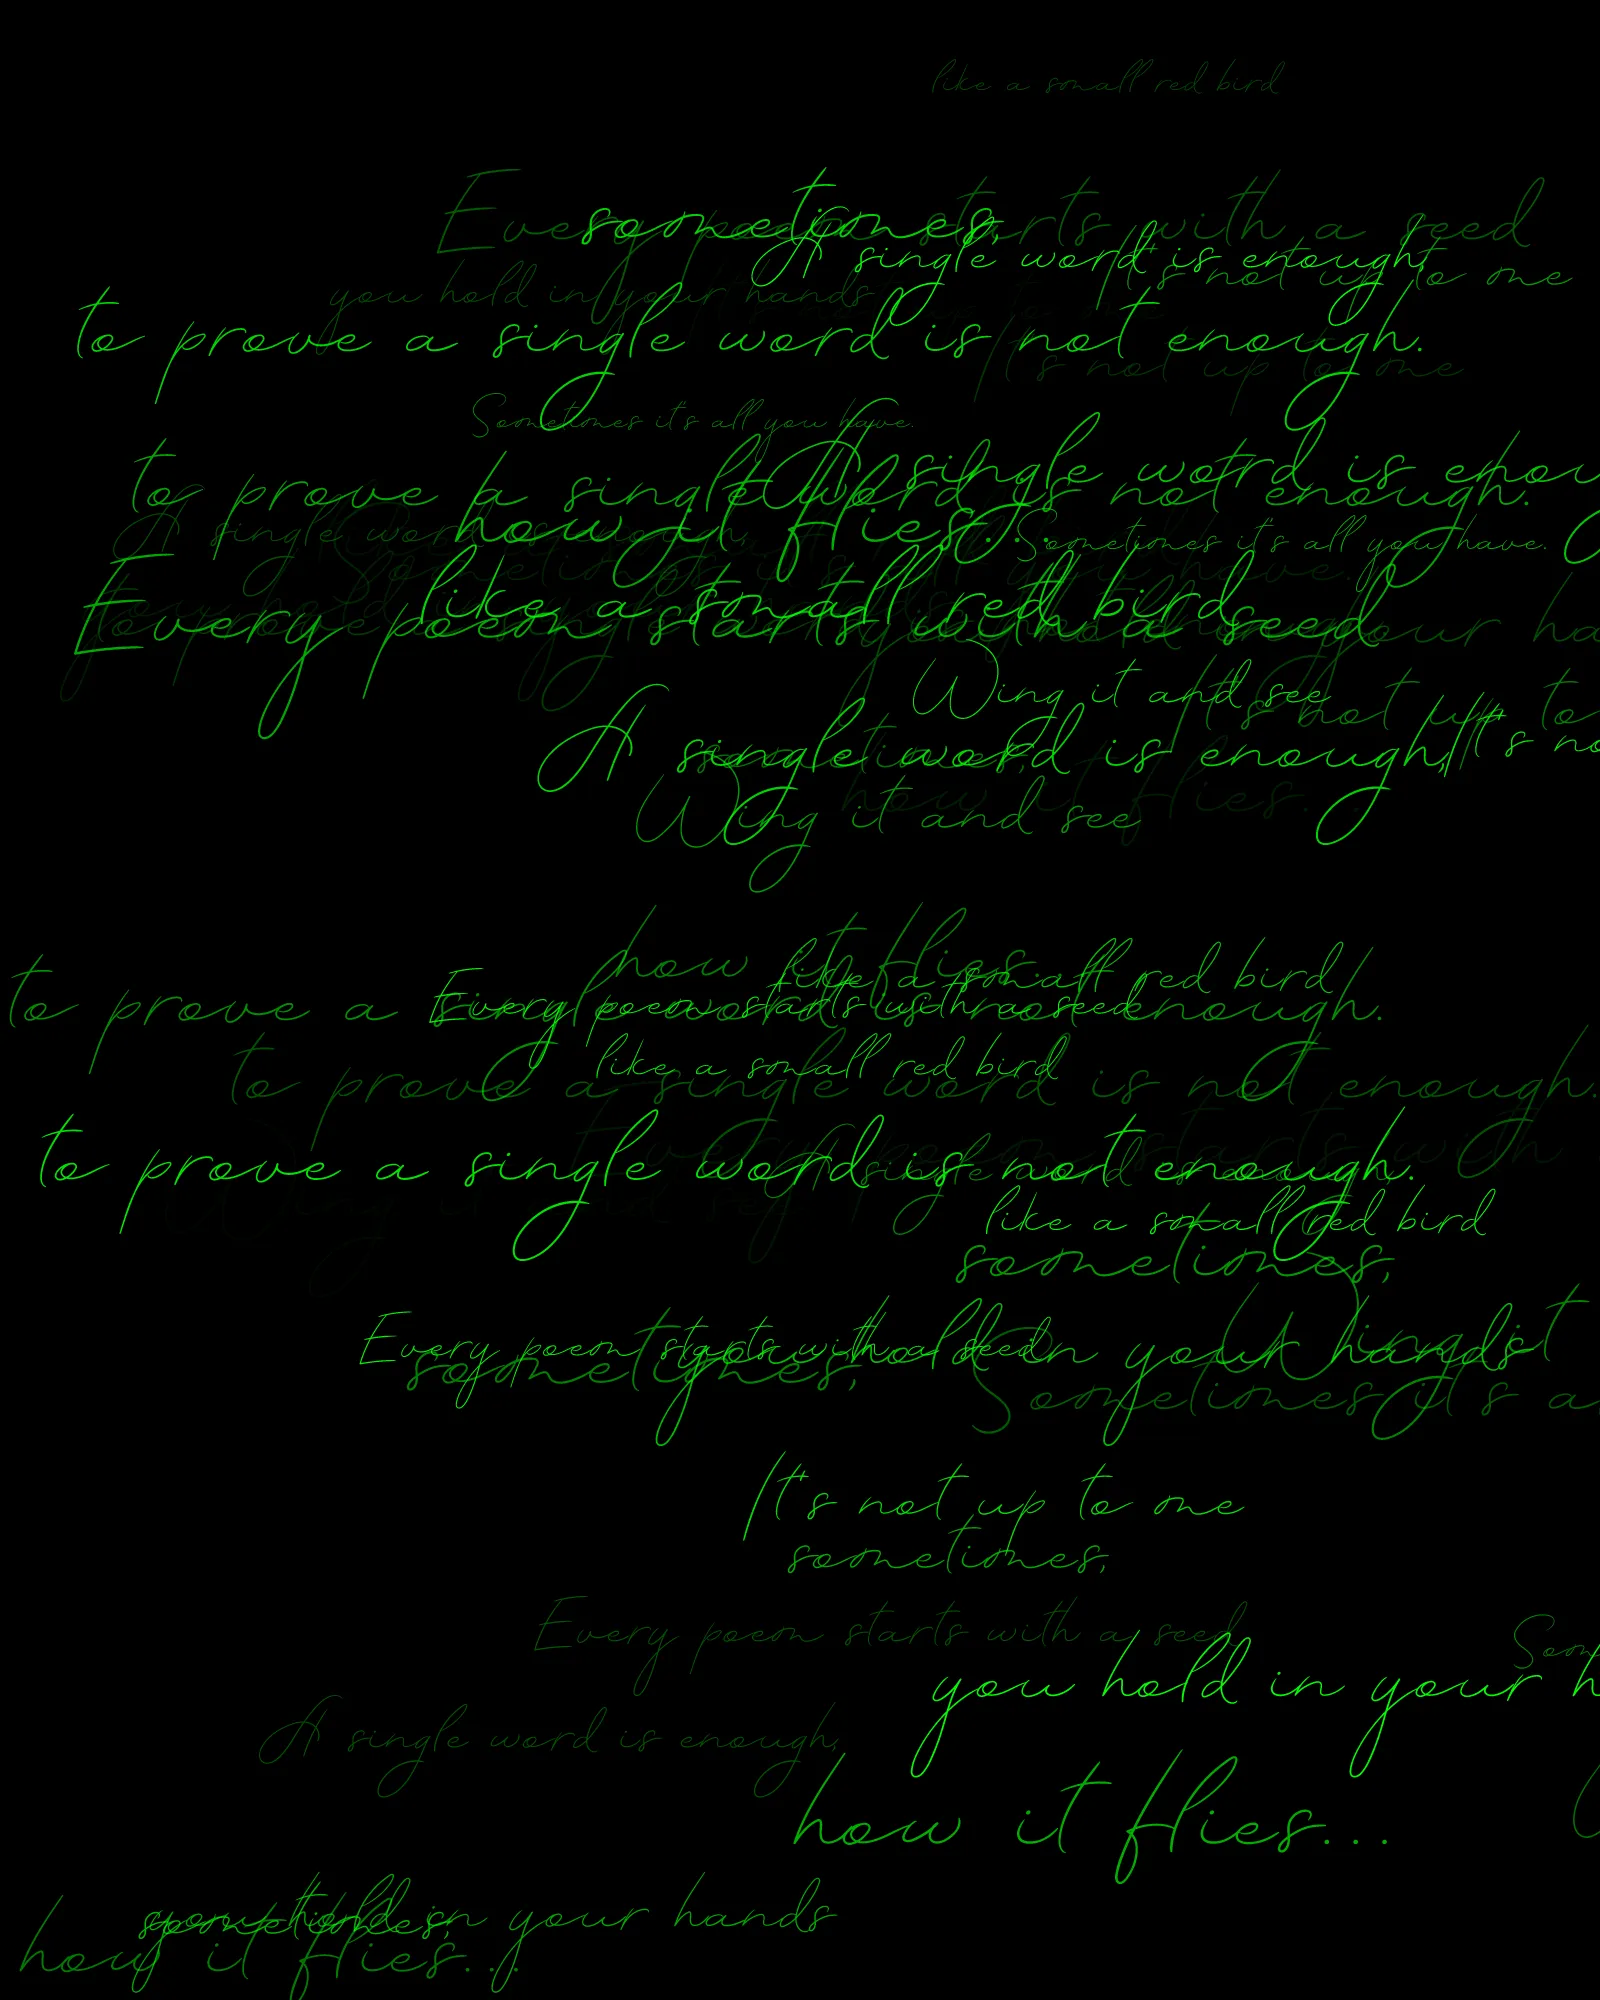 like a small red bird
Every poem starts with a seed
sometimes,
A single word is enough,
It's not up to me
you hold in your hands
It's not up to me
to prove a single word is not enough.
It's not up to me
Sometimes it's all you have.
A single word is enou
to prove a single word is not enough.
how it flies...
A single word is enough,
Sometimes it's all you have.
Sometimes it's all you have.
like a small red bird
you hold in your hands
to prove a single word is not enough.
Every poem starts with a seed
you hold in your ha
Wing it and see
It's not up to
It's no
A single word is enough,
sometimes,
how it flies...
Wing it and see
how it flies...
like a small red bird
to prove a single word is not enough.
Every poem starts with a seed
like a small red bird
to prove a single word is not enough.
Every poem starts with
to prove a single word is not enough.
A single word is enough,
Wing it and see
like a small red bird
sometimes,
Every poem starts with a seed
you hold in your hands
Wing it
sometimes,
Sometimes it's a
It's not up to me
sometimes,
Every poem starts with a seed
Som
you hold in your h
A single word is enough,
how it flies...
you hold in your hands
sometimes,
how it flies...